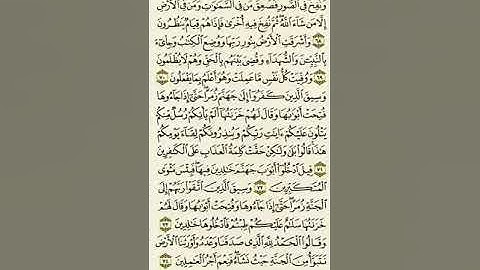 وَنُفِخَ فِي ٱلصُّورِ فَصَعِقَ مَن فِي ٱلسَّمَٰوَٰتِ وَمَن فِي ٱلْأَرْضِ
إِلَّا مَن شَآءَ ٱللَّهُ ثُمَّ نُفِخَ فِيهِ أُخْرَىٰ فَإِذَا هُمْ قِيَامٌ يَنظُرُونَ
٦٨ وَأَشْرَقَتِ ٱلْأَرْضُ بِنُورِ رَبِّهَا وَوُضِعَ ٱلْكِتَٰبُ وَجِا۟يٓءَ
بِٱلنَّبِيِّـۧنَ وَٱلشُّهَدَآءِ وَقُضِيَ بَيْنَهُم بِٱلْحَقِّ وَهُمْ لَا يُظْلَمُونَ
٦٩ وَوُفِّيَتْ كُلُّ نَفْسٍ مَّا عَمِلَتْ وَهُوَ أَعْلَمُ بِمَا يَفْعَلُونَ ٧٠
وَسِيقَ ٱلَّذِينَ كَفَرُوٓا۟ إِلَىٰ جَهَنَّمَ زُمَرًا حَتَّىٰٓ إِذَا جَآءُوهَا
فُتِحَتْ أَبْوَٰبُهَا وَقَالَ لَهُمْ خَزَنَتُهَآ أَلَمْ يَأْتِكُمْ رُسُلٌ مِّنكُمْ
يَتْلُونَ عَلَيْكُمْ ءَايَٰتِ رَبِّكُمْ وَيُنذِرُونَكُمْ لِقَآءَ يَوْمِكُمْ
هَٰذَا قَالُوا۟ بَلَىٰ وَلَٰكِنْ حَقَّتْ كَلِمَةُ ٱلْعَذَابِ عَلَى ٱلْكَٰفِرِينَ
٧١ قِيلَ ٱدْخُلُوٓا۟ أَبْوَٰبَ جَهَنَّمَ خَٰلِدِينَ فِيهَا فَبِئْسَ مَثْوَى
ٱلْمُتَكَبِّرِينَ ٧٢ وَسِيقَ ٱلَّذِينَ ٱتَّقَوْا۟ رَبَّهُمْ إِلَى
ٱلْجَنَّةِ زُمَرًا حَتَّىٰٓ إِذَا جَآءُوهَا وَفُتِحَتْ أَبْوَٰبُهَا وَقَالَ لَهُمْ
خَزَنَتُهَا سَلَٰمٌ عَلَيْكُمْ طِبْتُمْ فَٱدْخُلُوهَا خَٰلِدِينَ ٧٣
وَقَالُوا۟ ٱلْحَمْدُ لِلَّهِ ٱلَّذِي صَدَقَنَا وَعْدَهُۥ وَأَوْرَثَنَا ٱلْأَرْضَ
نَتَبَوَّأُ مِنَ ٱلْجَنَّةِ حَيْثُ نَشَآءُ فَنِعْمَ أَجْرُ ٱلْعَٰمِلِينَ ٧٤